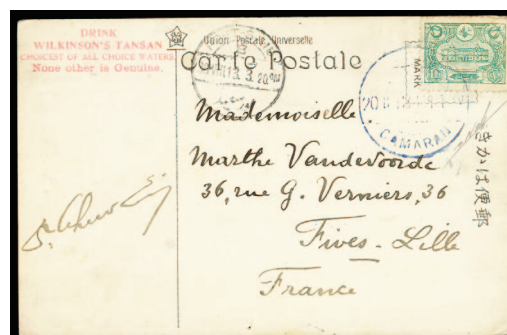 DRINK
WILKINSON'S TANSAN
CHOICEST OF ALL CHOICE WATERS
None other is Genuine.
Union Postale Universelle
Carte Postale
MARK
CAMARAN
Mademoiselle
Marthe Vandevoorde
36, rue G. Verniers, 36
Fives - Lille
France
きかは便郵